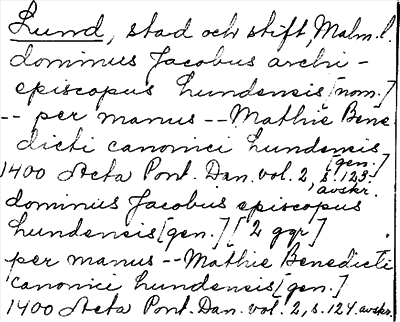 Lund, stad och stift, Malm. l.
dominus Jacobus archi-
episcopus Lundensis [nom.]
-- per manus -- Mathie Bene
dicti canonici Lundensis
[gen.]
1400 Acta Pont. Dan. vol. 2, s. 123
avskr.
dominus Jacobus episcopus
Lundensis [gen.] [2 ggr]
per manus -- Mathie Benedicti
canonici Lundensis [gen.]
1400 Acta Pont. Dan. vol. 2, s. 124 avskr.